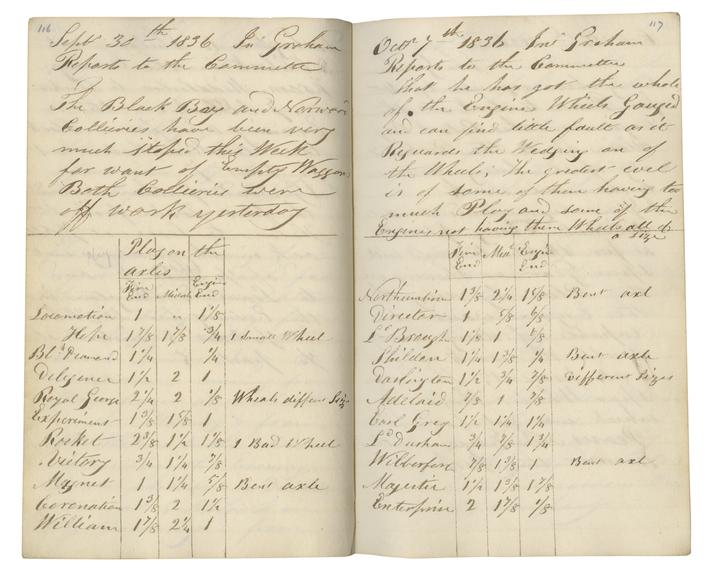 116
Sept 30th 1836 Jno Graham
Reports to the Committee
The Black Boy and Norwood
Collieries have been very
much stoped this Week
for want of Empty Waggons
Both Collieries were
off work yesterday
Play on the
axles
Fire End Middle Engine End
Locomotion 1 " 1 1/8
Hope 1 7/8 1 7/8 3/4 1 Small Wheel
Blk Diamond 1 1/4
Deligence 1 1/2 2 1
Royal George 2 1/4 2 Wheels differt Sizes
Experiment 1 3/8 1 5/8 1
Rocket 2 3/8 1 1/2 1 1/8 1 Bad Wheel
Victory 3/4 1 1/4 7/8
Magnet 1 1 1/4 5/8 Bent axle
Coronation 1 3/8 2 1 1/2
William 1 7/8 2 1/4 1
117
Octr 7th 1836 Jno Graham
Reports to the Committee
that he has got the whole
of the Engine Wheels Gauged
and can find little fault as it
Reguards the Wedging on of
the Wheels, The greatest evel
is of some of them having too
much Play and some of the
Engines not having there Wheels all of
a Size
Fire End Midd Engine End
Northumbrian 1 3/8 2 1/4 1 5/8 Bent axl
Director 1 5/8
Ld Brough 1 1/8 1
Shildon 1 1/4 1 3/8 3/4 Bent axle
Darlington 1 1/2 3/4 7/8 Different Sizes
Adelaid 7/8 1 7/8
Earl Grey 1 1/2 1 1/4 1 1/4
Ld Durham 3/4 7/8 1 3/4
Wilberforce 7/8 1 3/8 1 Bent axl
Majestic 1 1/2 1 3/8 1 7/8
Enterprise 2 1 7/8